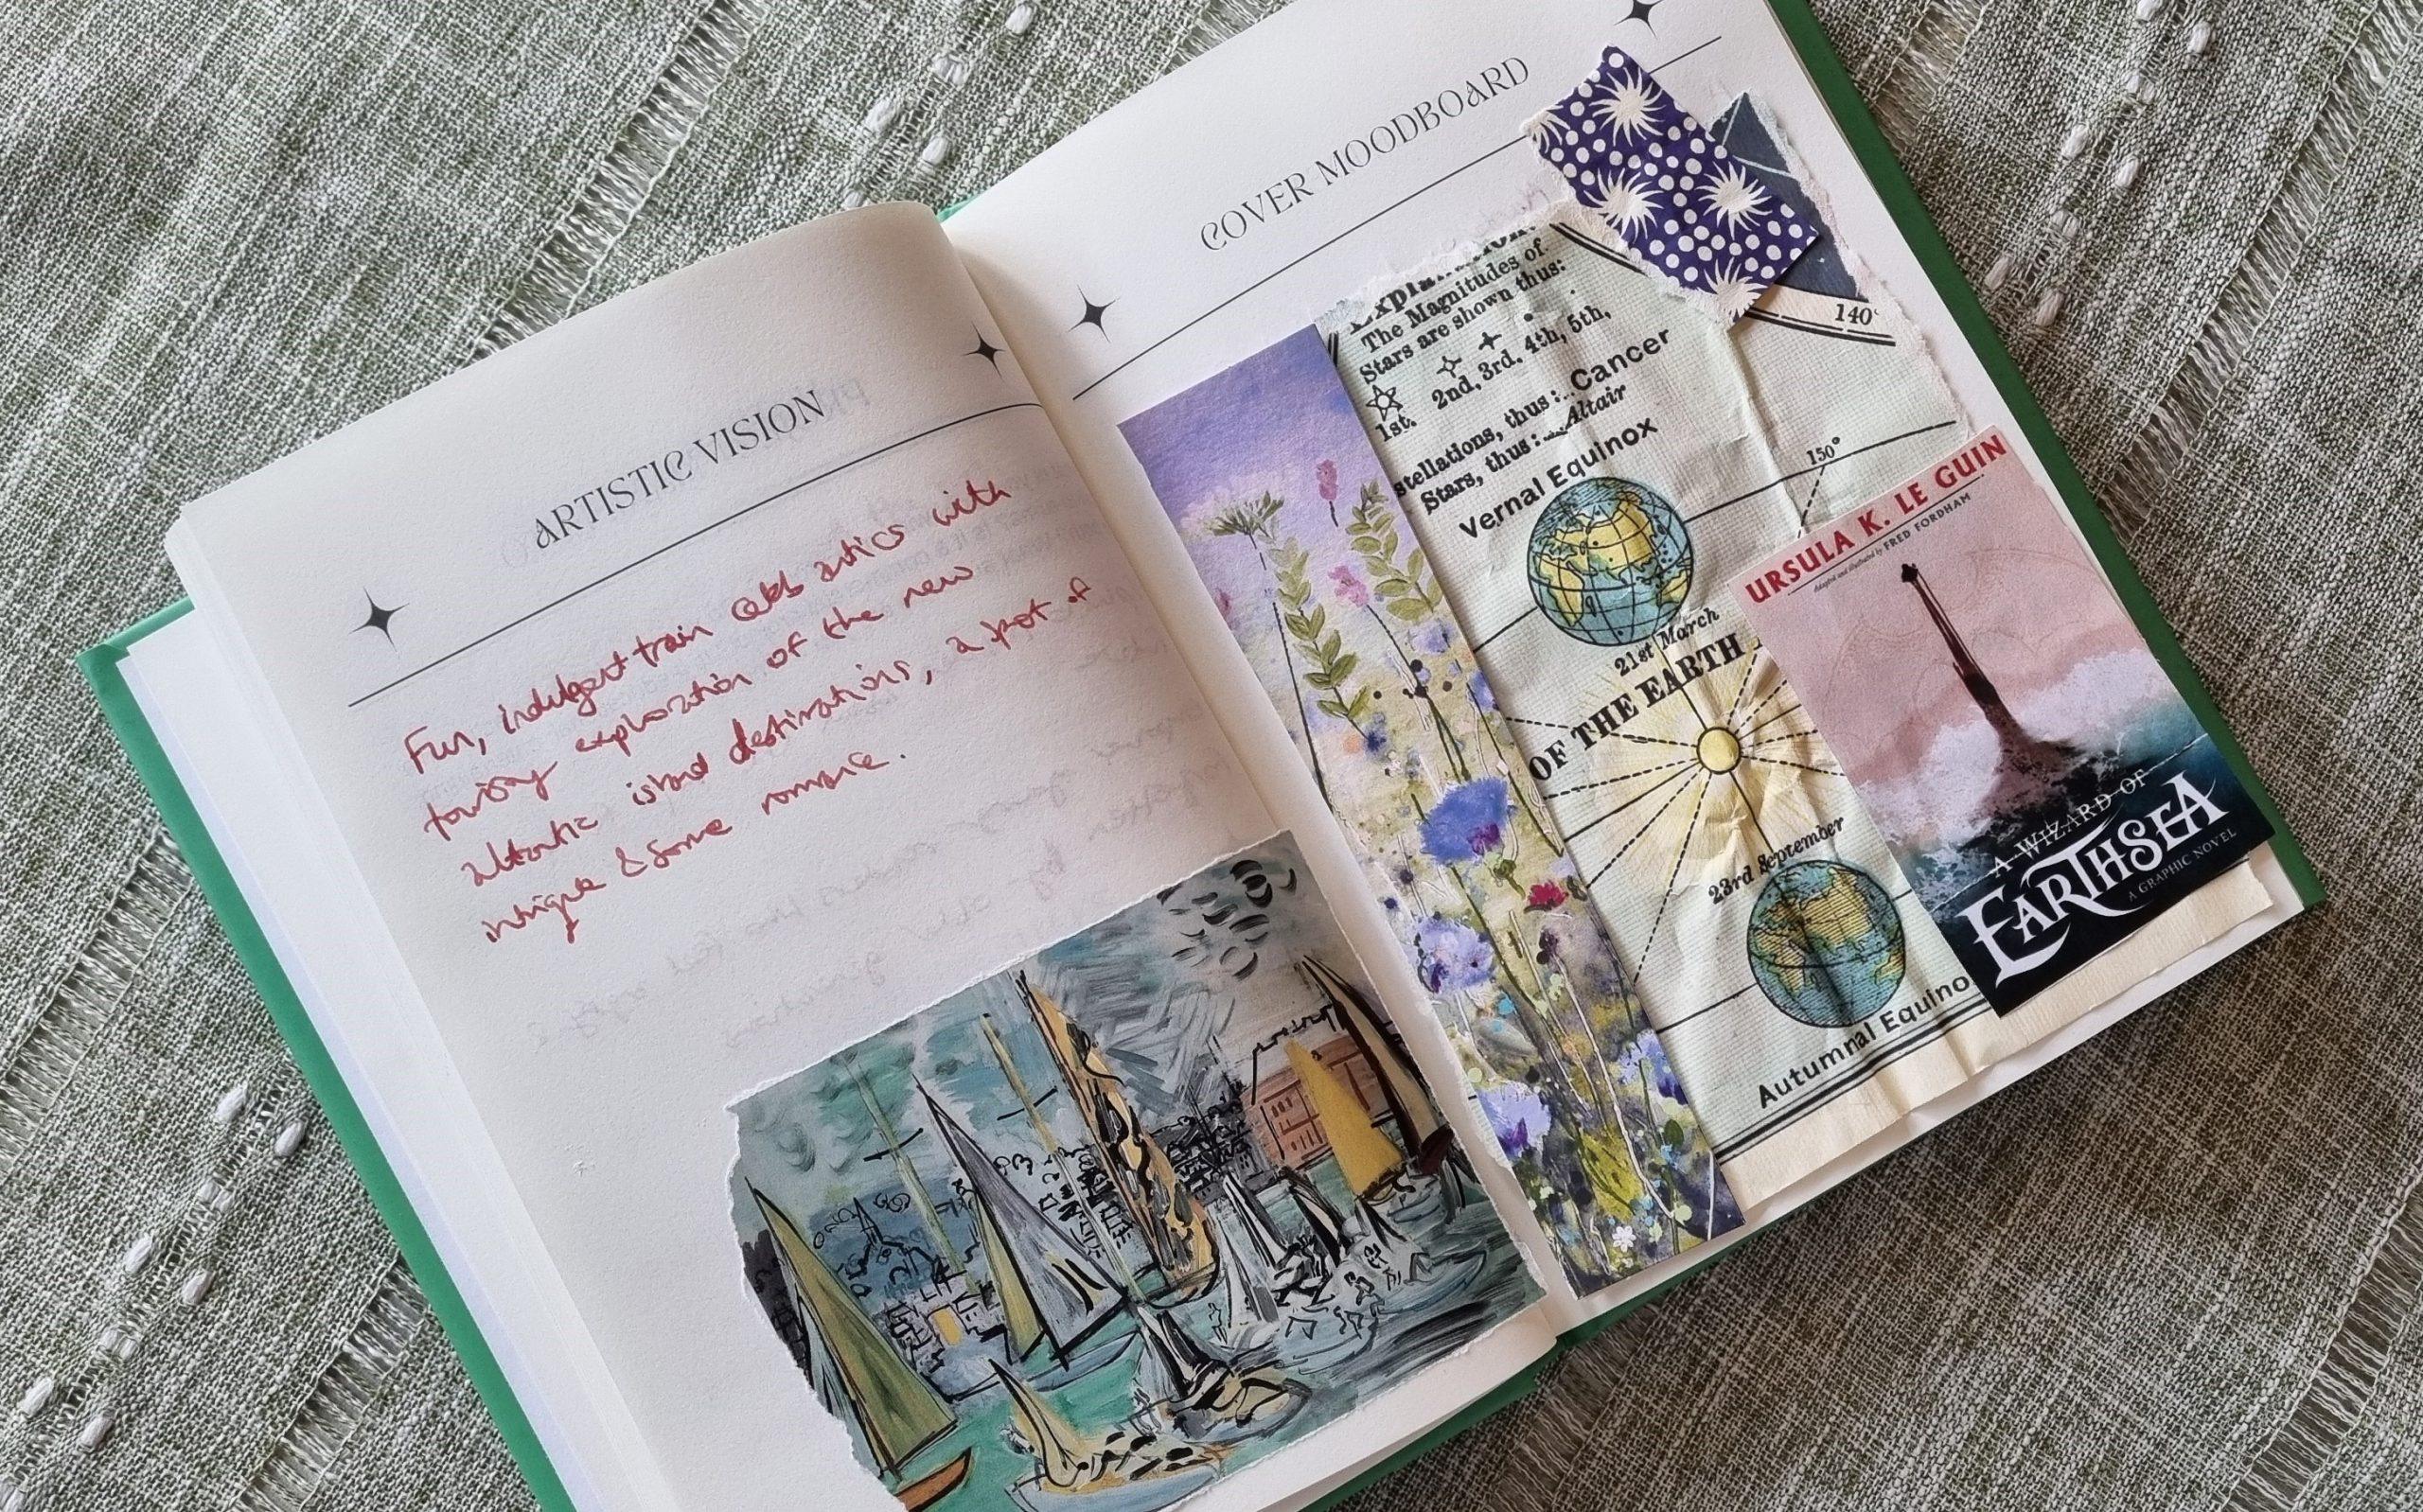 ARTISTIC VISION
Fun, indulgent train antics with
touristy exploration of the new
atlantic island destinations, a spot of
intrigue & some romance.
COVER MOODBOARD
The Magnitudes of
Stars are shown thus:
1st. 2nd, 3rd. 4th, 5th,
stellations, thus:.. Cancer
Stars, thus:... Altair
Vernal Equinox
140°
150°
21st March
OF THE EARTH
23rd September
Autumnal Equino
URSULA K. LE GUIN
Adapted and illustrated by FRED FORDHAM
A WIZARD OF
EARTHSEA
A GRAPHIC NOVEL